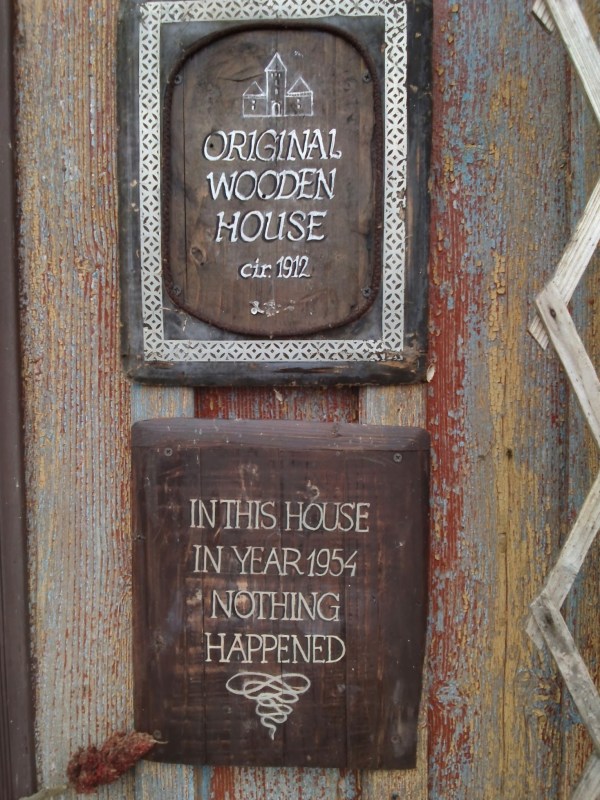 ORIGINAL
WOODEN
HOUSE
cir. 1912
IN THIS HOUSE
IN YEAR 1954
NOTHING
HAPPENED